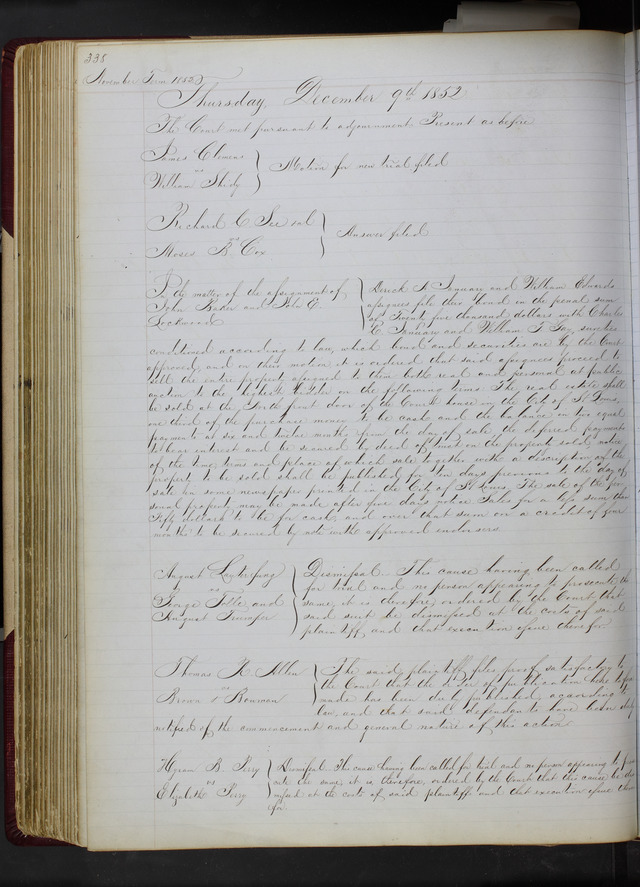 338
November Term 1852
Thursday December 9th 1852
The Court met pursuant to adjournment Present as before
James Clemens
vs
William Shedy
Motion for new trial filed
Richard C
vs
Moses B. Cox
Answer filed
In the matter of the assignment of
John Baker and John E.
Lockwood
Derick A January and William Edwards
assignees file their bond in the penal sum
of Twenty five thousand dollars with Charles
E. January and William T Gay, sureties
conditioned according to law, which bond and securities are by the Court
approved, and on their motion it is ordered that said assignees proceed to
sell the entire property assigned to them both real and personal at public
auction to the highest bidder on the following terms The real estate shall
be sold at the North front door of the Court house in the City of St Louis
one third of the purchase money to be cash and the balance in two equal
payments at six and twelve months from the day of sale, the deferred payments
to bear interest and be secured by deed of trust on the property sold, notice
of the time, terms and place of which sale together with a description of the
property to be sold shall be published for ten days previous to the day of
sale in some newspaper printed in the City of St Louis The sale of the per
sonal property may be made after five days notice Sales for a less sum than
Fifty dollars to be for cash, and over that sum on a credit of four
months to be secured by note with approved endorsers.
August
vs
George and
August
Dismissal. This cause having been called
for trial and no person appearing to prosecute the
same, it is therefore ordered by the Court that
said suit be dismissed at the costs of said
plaintiff and that execution issue therefor.
Thomas H. Allen
vs
Brown & Bowman
The said plaintiff files proof satisfactory to
the Court that the order of publication
made has been duly published according to
law, and that said defendants have been duly
notified of the commencement and general nature of this action
Hyram B. Perry
vs
Elizabeth Perry
Dismissal. This cause having been called for trial and no person appearing to prose
cute the same, it is therefore, ordered by the Court that this cause be dis
missed at the costs of said plaintiff and that execution issue there
for